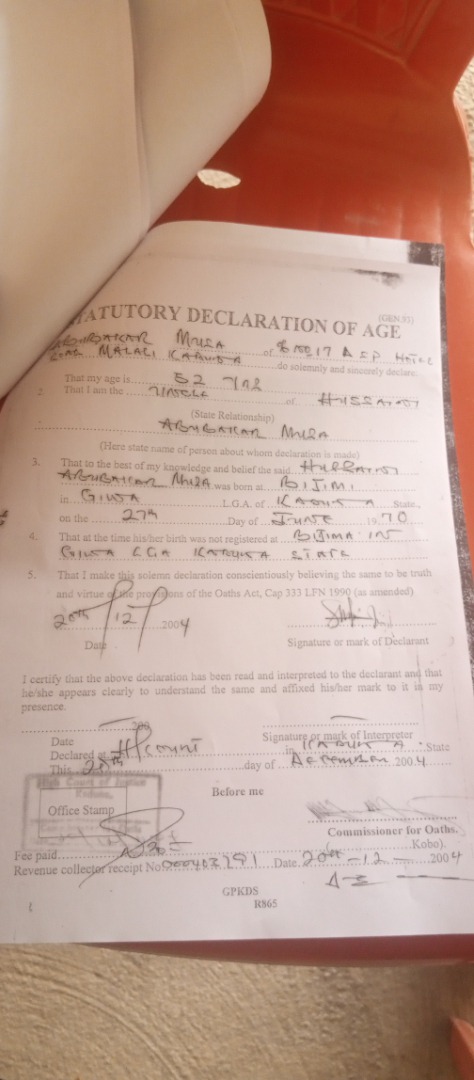 STATUTORY DECLARATION OF AGE
(GEN 93)
ABUBAKAR MUSA of
ROAD MALALI KADUNA do solemnly and sincerely declare.
That my age is 52
2. That I am the of HUSSAINI
(State Relationship)
ABUBAKAR MUSA
(Here state name of person about whom declaration is made)
3. That to the best of my knowledge and belief the said HUSSAINI
ABUBAKAR MUSA was born at BIJIMI
in GIWA L.G.A. of KADUNA State
on the 27th Day of JUNE 1970
4. That at the time his/her birth was not registered at BIJIMA IN
GIWA LGA KADUNA STATE
5. That I make this solemn declaration conscientiously believing the same to be truth
and virtue of the provisions of the Oaths Act, Cap 333 LFN 1990 (as amended)
20th 12 2004
Date Signature or mark of Declarant
I certify that the above declaration has been read and interpreted to the declarant and that
he/she appears clearly to understand the same and affixed his/her mark to it in my
presence.
200
Date Signature or mark of Interpreter
Declared at H/Court in KADUNA State
This 20th day of December 2004
High Court of Justice
Kaduna
Before me
Office Stamp
Commissioner for Oaths.
Fee paid Kobo)
Revenue collector receipt No Date 20th - 12 - 2004
GPKDS
R865